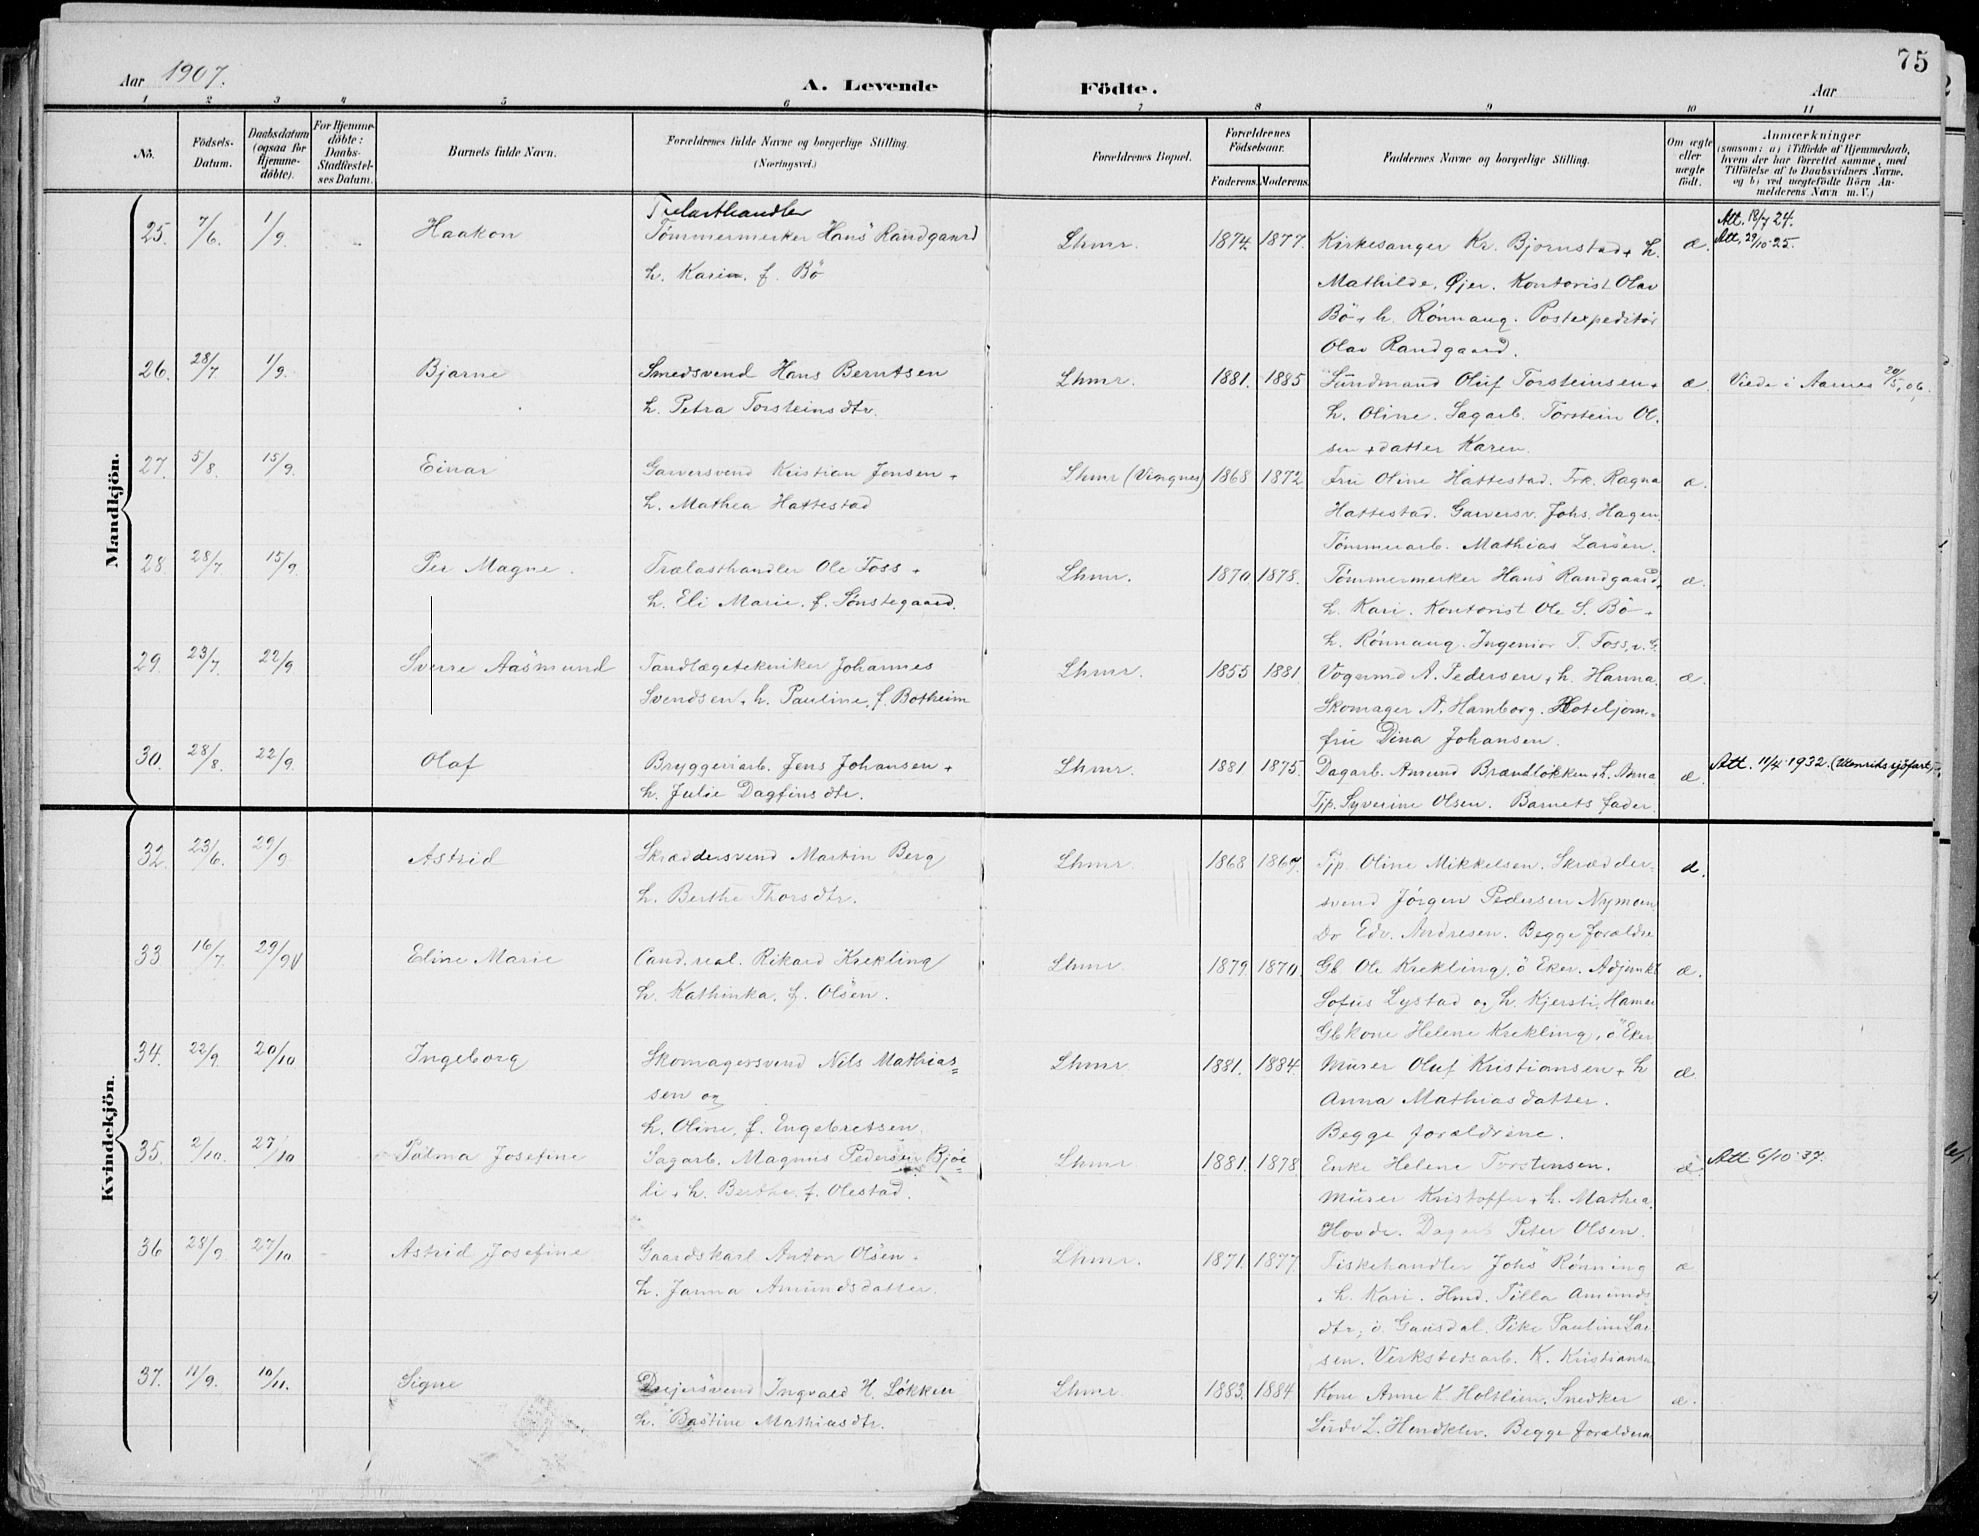 75
Aar 1907.
A. Levende Födte.
Aar
1 2 3 4 5 6 7 8 9 10 11
No.
Födsels-Datum.
Daabsdatum (ogsaa for Hjemme-döbte).
For Hjemme-döbte: Daabs-Stadfæstel-ses Datum.
Barnets fulde Navn.
Forældrenes fulde Navne og borgerlige Stilling. (Næringsvei.)
Forældrenes Bopæl.
Forældrenes Födselsaar.
Faderens. Moderens.
Faddernes Navne og borgerlige Stilling.
Om ægte eller uægte födt.
Anmærkninger
(saasom: a) i Tilfælde af Hjemmedaab, hvem der har forrettet samme, med Tilföielse af to Daabsvidners Navne, og b) ved uægtefödte Börn An-melderens Navn m. V.)
Mandkjön.
Trelasthandler
25. 7/6. 1/9. Haakon Tømmermerker Hans Randgaard Lhmr. 1874. 1877. Kirkesanger Kr. Bjørnstad + h. æ. Att. 18/7 24.
Att. 29/10 25.
h. Karin. f. Bö Mathilde. Øjer. Kontorist Olav
Bö + h. Rönnaug. Postexpeditör
Olav Randgaard.
26. 28/7 1/9. Bjarne Smedsvend Hans Berntsen Lhmr. 1881. 1885 Olüf Torsteinsen + æ Viede i Aarnes 20/5, 06.
h. Petra Torsteinsdtr. h. Oline. Sagarb. Torstein Ol-
sen + datter Karen.
27. 5/8. 15/9. Einar Garversvend Kristian Jensen + Lhmr (Vingnes) 1868 1872 Fru Oline Hattestad. Frk. Ragna æ.
h. Mathea Hattestad Hattestad. Garversv. Johs. Hagen.
Tömmerarb. Mathias Larsen.
28. 28/7 15/9. Per Magne. Trælasthandler Ole Foss + Lhmr. 1870 1878. Tømmermerker Hans Randgaard + æ.
h. Eli Marie. f. Sönstegaard. h. Kari. Kontorist Ole S. Bö +
h. Rönnaug. Ingeniör T. Foss,
29. 23/7. 22/9. Sverre Aasmund Tandlægetekniker Johannes Lhmr. 1855 1881. Vognmd A. Pedersen + h. Hanna. æ.
Svendsen + h. Pauline, f. Botheim Skomager A. Hamborg. Hoteljom-
fru Dina Johansen.
30. 28/8. 22/9. Olaf Bryggeriarb. Jens Johansen + Lhmr. 1881 1875. Dagarb. Amund Brændløkken + h. Anna æ. Att. 11/4 1932. (Utenriks sjöfart)
h. Julie Dagfinsdtr. Tjp. Syverine Olsen. Barnets fader.
Kvindekjön.
32. 23/6. 29/9 Astrid Skræddersvend Martin Berg Lhmr. 1868 1867. Tjp. Oline Mikkelsen. Skrædder- æ.
h. Berthe Thorsdtr. svend Jørgen Pedersen Nymoen
Do Edv. Andresen. Begge forældre
33. 16/7. 29/9 Eline Marie Cand. real. Rikard Krekling Lhmr. 1879. 1870. Gb. Ole Krekling, ö Eker. Adjunkt æ.
h. Kathinka. f. Olsen. Sofus Lystad og h. Kjersti, Hamar
Gbkone Helene Krekling, ö Eker
34. 22/9. 20/10 Ingeborg Skomagersvend Nils Mathias= Lhmr. 1881. 1884. Murer Oluf Kristiansen + h æ.
sen og Anna Mathiasdatter.
h. Oline, f. Engebretsen. Begge forældrene.
35. 2/10. 27/10 Palma Josefine Sagarb. Magnus Pedersen Bjöe= Lhmr. 1881. 1878 Enke Helene Torstensen. æ. Att 6/10 37.
li + h. Berthe f. Olestad. Murer Kristoffer + h. Mathea
Hovde. Dagarb Peter Olsen.
36 28/9. 27/10 Astrid Josefine Gaardskarl Anton Olsen + Lhmr. 1871. 1877. Fiskehandler Johs Rönning æ
h. Janna Amundsdatter. + h. Kari. Hmd. Tilla Amunds
dtr, i Gausdal. Pike Pauline Lar
sen. Verkstedsarb. K. Kristiansen
37. 11/9. 10/11. Signe Dreiersvend Ingvald H. Løkken Lhmr. 1883. 1884 Kone Anne K. Holtlien, Snedker æ.
h. Bastine Mathiasdtr. L. Hendklev. Begge forældrene